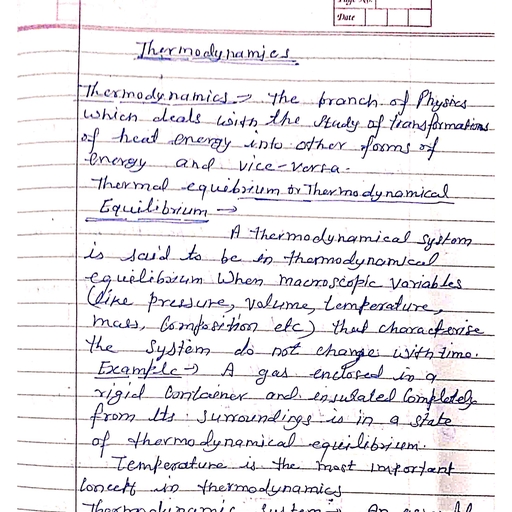 Page No.
Date
Thermodynamics
Thermodynamics → The branch of Physics
which deals with the study of transformations
of heat energy into other forms of
energy and vice-versa.
Thermal equibrium or Thermodynamical
Equilibrium →
A thermodynamical system
is said to be in thermodynamical
equilibrium when macroscopic variables
(like pressure, volume, temperature,
mass, composition etc) that characterise
the system do not change with time.
Example → A gas enclosed in a
rigid container and insulated completely
from its surroundings is in a state
of thermodynamical equilibrium.
Temperature is the most important
concept in thermodynamics
Thermodynamic System →